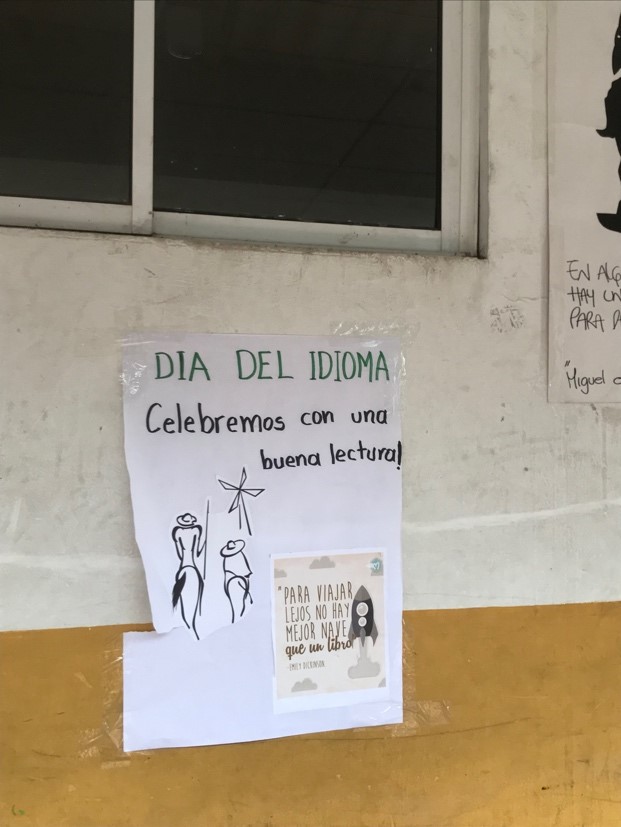 DIA DEL IDIOMA
Celebremos con una
buena lectura!
"PARA VIAJAR
LEJOS NO HAY
MEJOR NAVE
que un libro"
-EMILY DICKINSON
EN
HAY
PARA
"Miguel